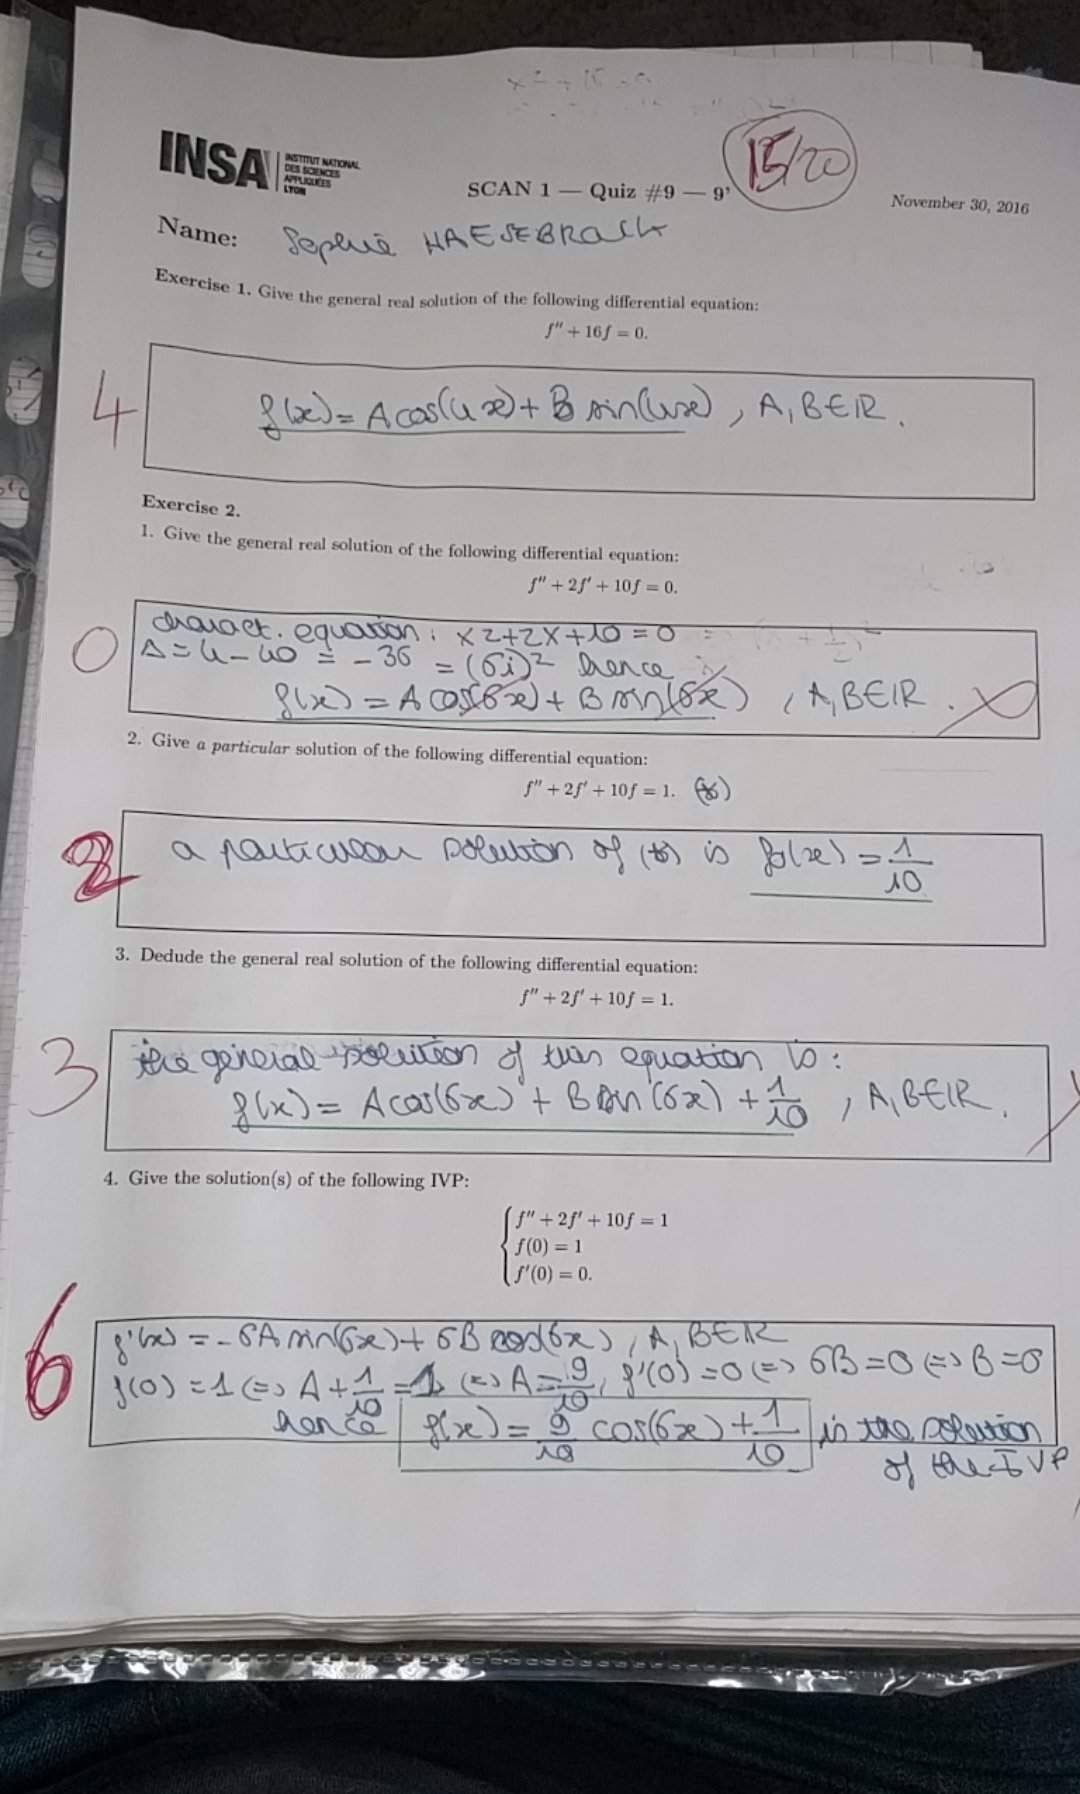 15/20
INSA INSTITUT NATIONAL
DES SCIENCES
APPLIQUÉES
LYON
SCAN 1 — Quiz #9 — 9'
November 30, 2016
Name: Sophie HAESEBRACK
Exercise 1. Give the general real solution of the following differential equation:
f'' + 16f = 0.
4
f(x) = A cos(4x) + B sin(4x), A, B ∈ IR.
Exercise 2.
1. Give the general real solution of the following differential equation:
f'' + 2f' + 10f = 0.
0
charact. equation: x2+2x+10 = 0
Δ = 4-40 = -36 = (6i)² hence
f(x) = A cos(6x) + B sin(6x), A, B ∈ IR.
2. Give a particular solution of the following differential equation:
f'' + 2f' + 10f = 1. (*)
2
a particular solution of (*) is f0(x) = 1/10
3. Dedude the general real solution of the following differential equation:
f'' + 2f' + 10f = 1.
3
the general solution of this equation is:
f(x) = A cos(6x) + B sin(6x) + 1/10, A, B ∈ IR.
4. Give the solution(s) of the following IVP:
f'' + 2f' + 10f = 1
f(0) = 1
f'(0) = 0.
6
f'(x) = -6A sin(6x) + 6B cos(6x), A, B ∈ IR
f(0) = 1 <=> A + 1/10 = 1 <=> A = 9/10, f'(0) = 0 <=> 6B = 0 <=> B = 0
hence f(x) = 9/10 cos(6x) + 1/10 is the solution
of the IVP